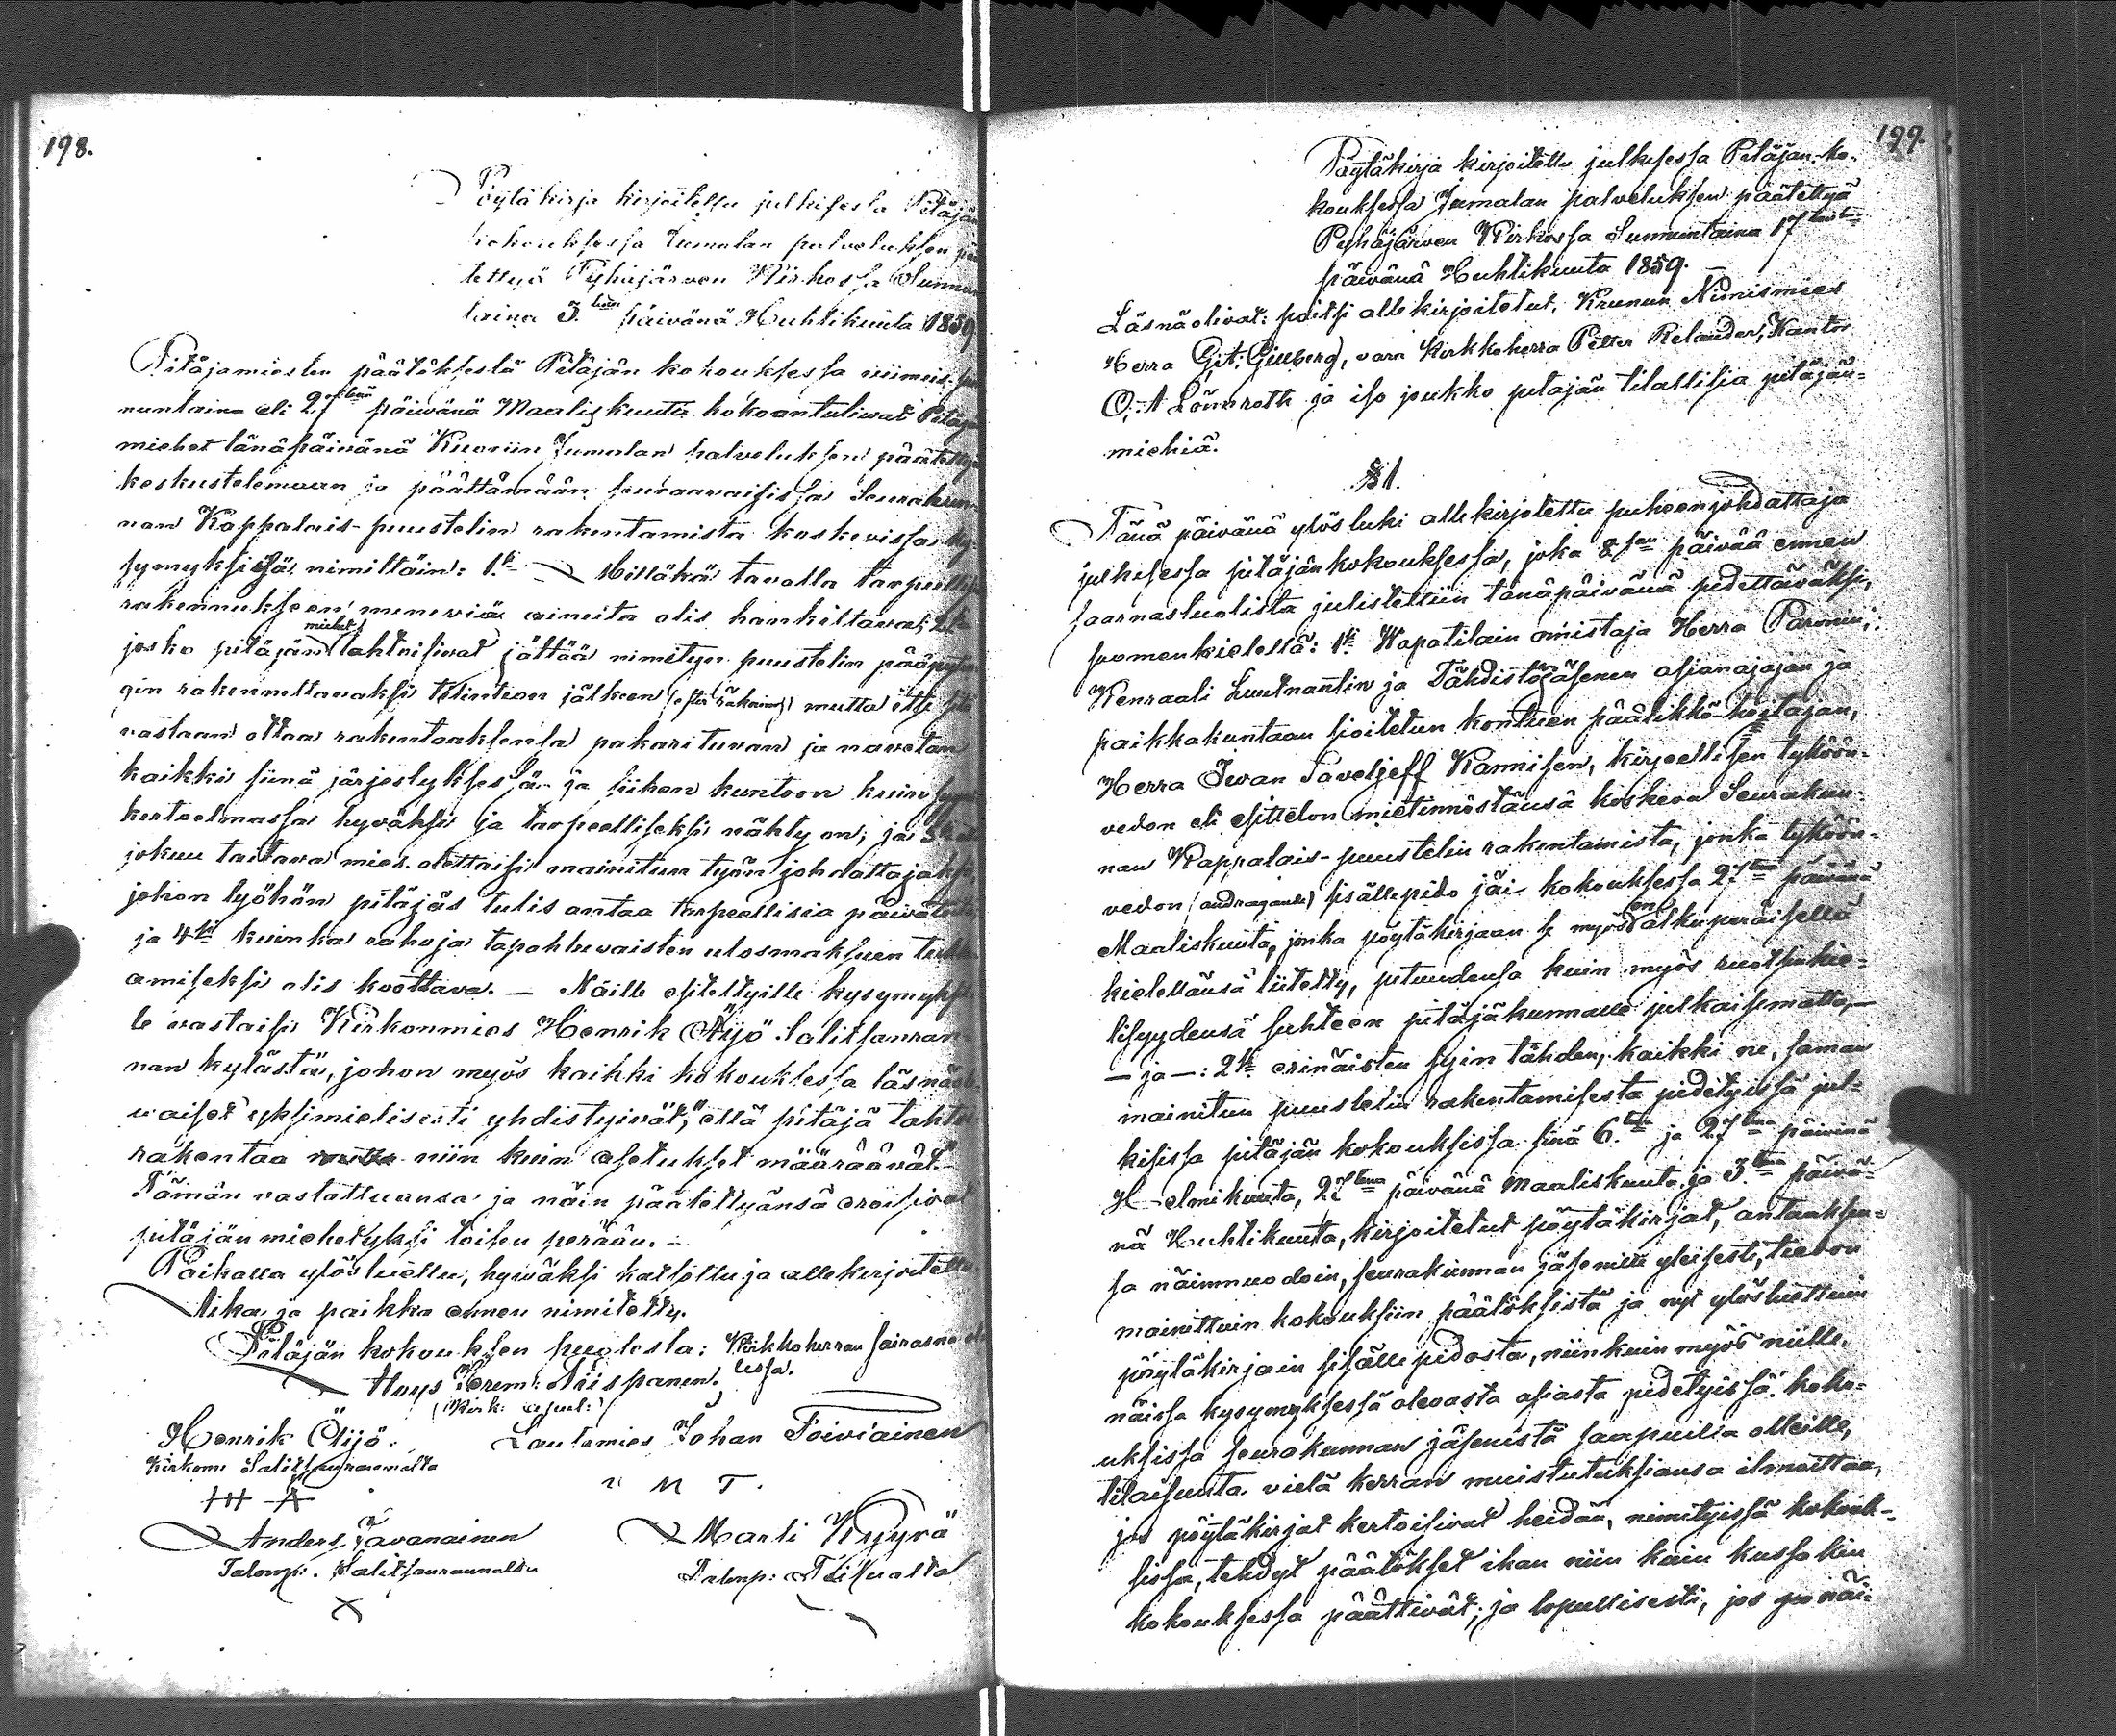 198.
Pöytäkirja kirjoitettu julkisesta Pitäjän
kokouksessa Jumalan palveluksen pää
tettyä Pyhäjärven Kirkossa Sunnun
taina 3.tena päivänä Huhtikuuta 1859
Pitäjämiesten päätöksestä Pitäjän kokouksessa viimeis Sun
nuntaina eli 27tenä päivänä Maaliskuuta kokoontuliwat Pitäjän
miehet tänäpäivänä Kuoriin Jumalan palveluksen päätettyä
keskustelemaan ja päättämään seuraavaisissa Seurakun
nan Kappalais-puustelin rakentamista koskevissa ky-
symyksissä, nimittäin: 1.ksi Milläkä tavalla tarpeellisia
rakennukseen meneviä aineita olis hankittava; 2ksi
josko pitäjän miehet tahtoisivat jättää nimityn puustelin pääpytin
gin rakennettavaksi tilintion jälkeen (efter räkning) mutta itse
vastaan ottaa rakentaaksensa pakarituvan ja navetan
kaikki siinä järjestyksessä ja siihen kuntoon kuin
kertoelmassa hyväksi ja tarpeelliseksi nähty on; ja 3ksi
jokuu taitava mies otettaisi mainitun työn johdattajaksi,
johon työhön pitäjäs tulis antaa tarpeellisia päiväteitä
ja 4ksi kuinka rahoja tapahtuvaisten ulosmaksuen
amiseksi olis koottava. — Näille esitettyille kysymyksil
le vastaisi Kirkonmies Henrik Öijö Salitsanran-
nan kylästä, johon myös kaikki kokouksessa läsnäol-
waiset yksimielisesti yhdistyivät, "että pitäjä tahtoo
rakentaa niin kuin asetukset määräävät."
Tämän vastattuansa ja näin päätettyänsä eroisivat
pitäjän miehet yksi toisen perään. —
Paikalla ylösluettu, hywäksi katsottu ja allekirjoitettu
Aika ja paikka ennen nimitetty.
Pitäjän kokouksen puolesta: Kirkkoherran sairasna ol
lessa.
Niispanen.
(Kirk: apul:)
Henrik Öijö. Lautamies Johan Toiviainen
Kirkonm Salitsanrannalta
H A M T.
Anders Tavanainen Marti Kyyrö
Talonp: Salitsanrannalta Talonp:
X
199.
Pöytäkirja kirjoitettu julkisessa Pitäjän-ko-
kouksessa Jumalan palveluksen päätettyä
Pyhäjärven Kirkossa Sunnuntaina 17
päivänä Huhtikuuta 1859. —
Läsnä olivat: paitsi allekirjoitetut, Krunun Nimismies
Herra Git: Gillberg, vara Kirkkoherra Petter Relander, Kantor
O: A Lönnroth ja iso joukko pitäjän tilallisia pitäjän-
miehiä.
§ 1.
Tänä päivänä ylösluki allekirjotettu puheenjohdattaja
julkisessa pitäjänkokouksessa, joka 8san päivää ennen
saarnastuolista julistettiin tänäpäivänä pidettäväksi,
suomenkielellä: 1ksi Wapatilain omistaja Herra Paronin,
Kenraali Luutnantin ja Tähdistöjäsenen asianajajan ja
paikkakuntaan sioitetun kontuen päälikkö-hoitajan,
Herra Iwan Saveljeff Kannisen, kirjoellisen tyköön-
vedon eli esittelon mietinnöstänsä koskeva Seurakun-
nan Kappalais-puustelin rakentamista, jonka tyköön-
vedon (andragande) sisällepido jäi kokouksessa 27tenä päivänä
Maaliskuuta, jonka pöytäkirjaan se myös on alkuperäisellä
kielellänsä liitetty, pituudensa kuin myös ruotsinkie-
lisyydensä suhteen pitäjäkunnalle julkaisematta,—
— ja —: 2ksi erinäisten syin tähden, kaikki ne, saman
mainitun puustelin rakentamisesta pidetyissä jul-
kisissa pitäjän kokouksissa sinä 6.tena ja 27tena päivinä
Helmikuuta, 27tena päivänä Maaliskuuta ja 3.tena päivä-
nä Huhtikuuta, kirjoitetut pöytäkirjat, antaaksen-
sa näinmuodoin, seurakunnan jäsenille yleisesti, tiedon
mainittuin kokouksiin päätöksistä ja nyt ylösluettuin
pöytäkirjain sisällepidosta, niinkuin myös niille,
näissä kysymyksessä olevasta asiasta pidetyissä koko-
uksissa seurakunnan jäsenistä saapuilla olleille,
tilaisuuta vielä kerran muistutuksiansa ilmoittaa,
jos pöytäkirjat kertoisivat heidän, nimityissä kokouk-
sissa, tehdyt päätökset ihan niin kuin kussakin
kokouksessa päättivät; ja lopullisesti, jos yo näi-